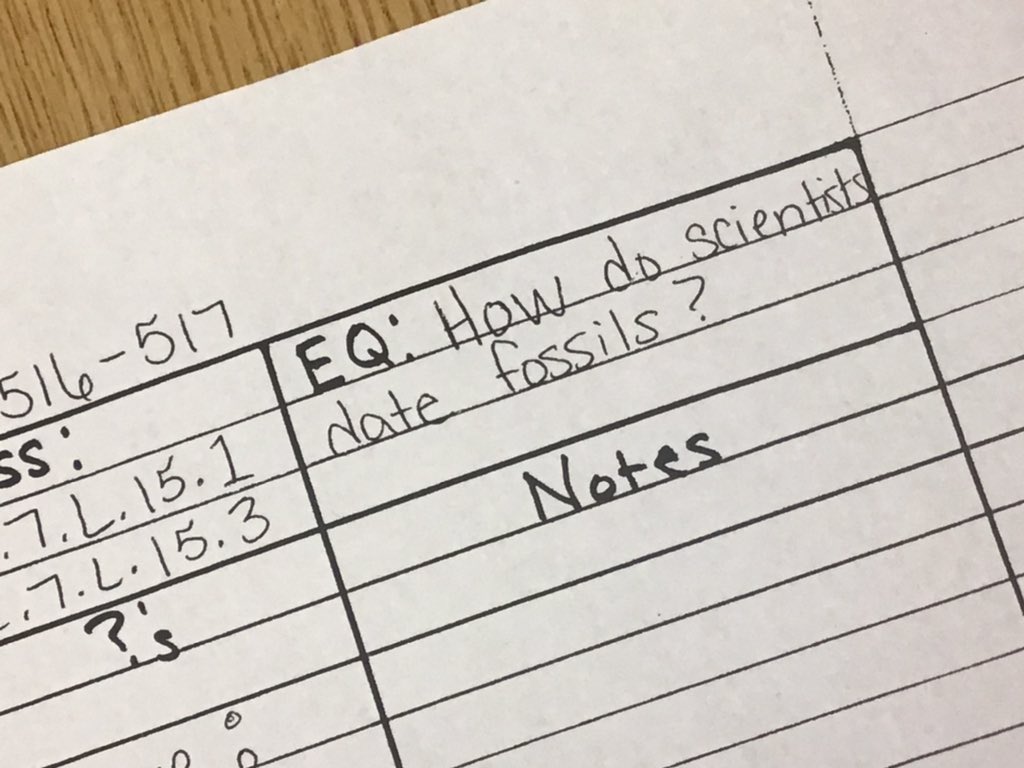 516-517
EQ: How do scientists
date fossils?
ss:
.7.L.15.1
.7.L.15.3
Notes
?'s